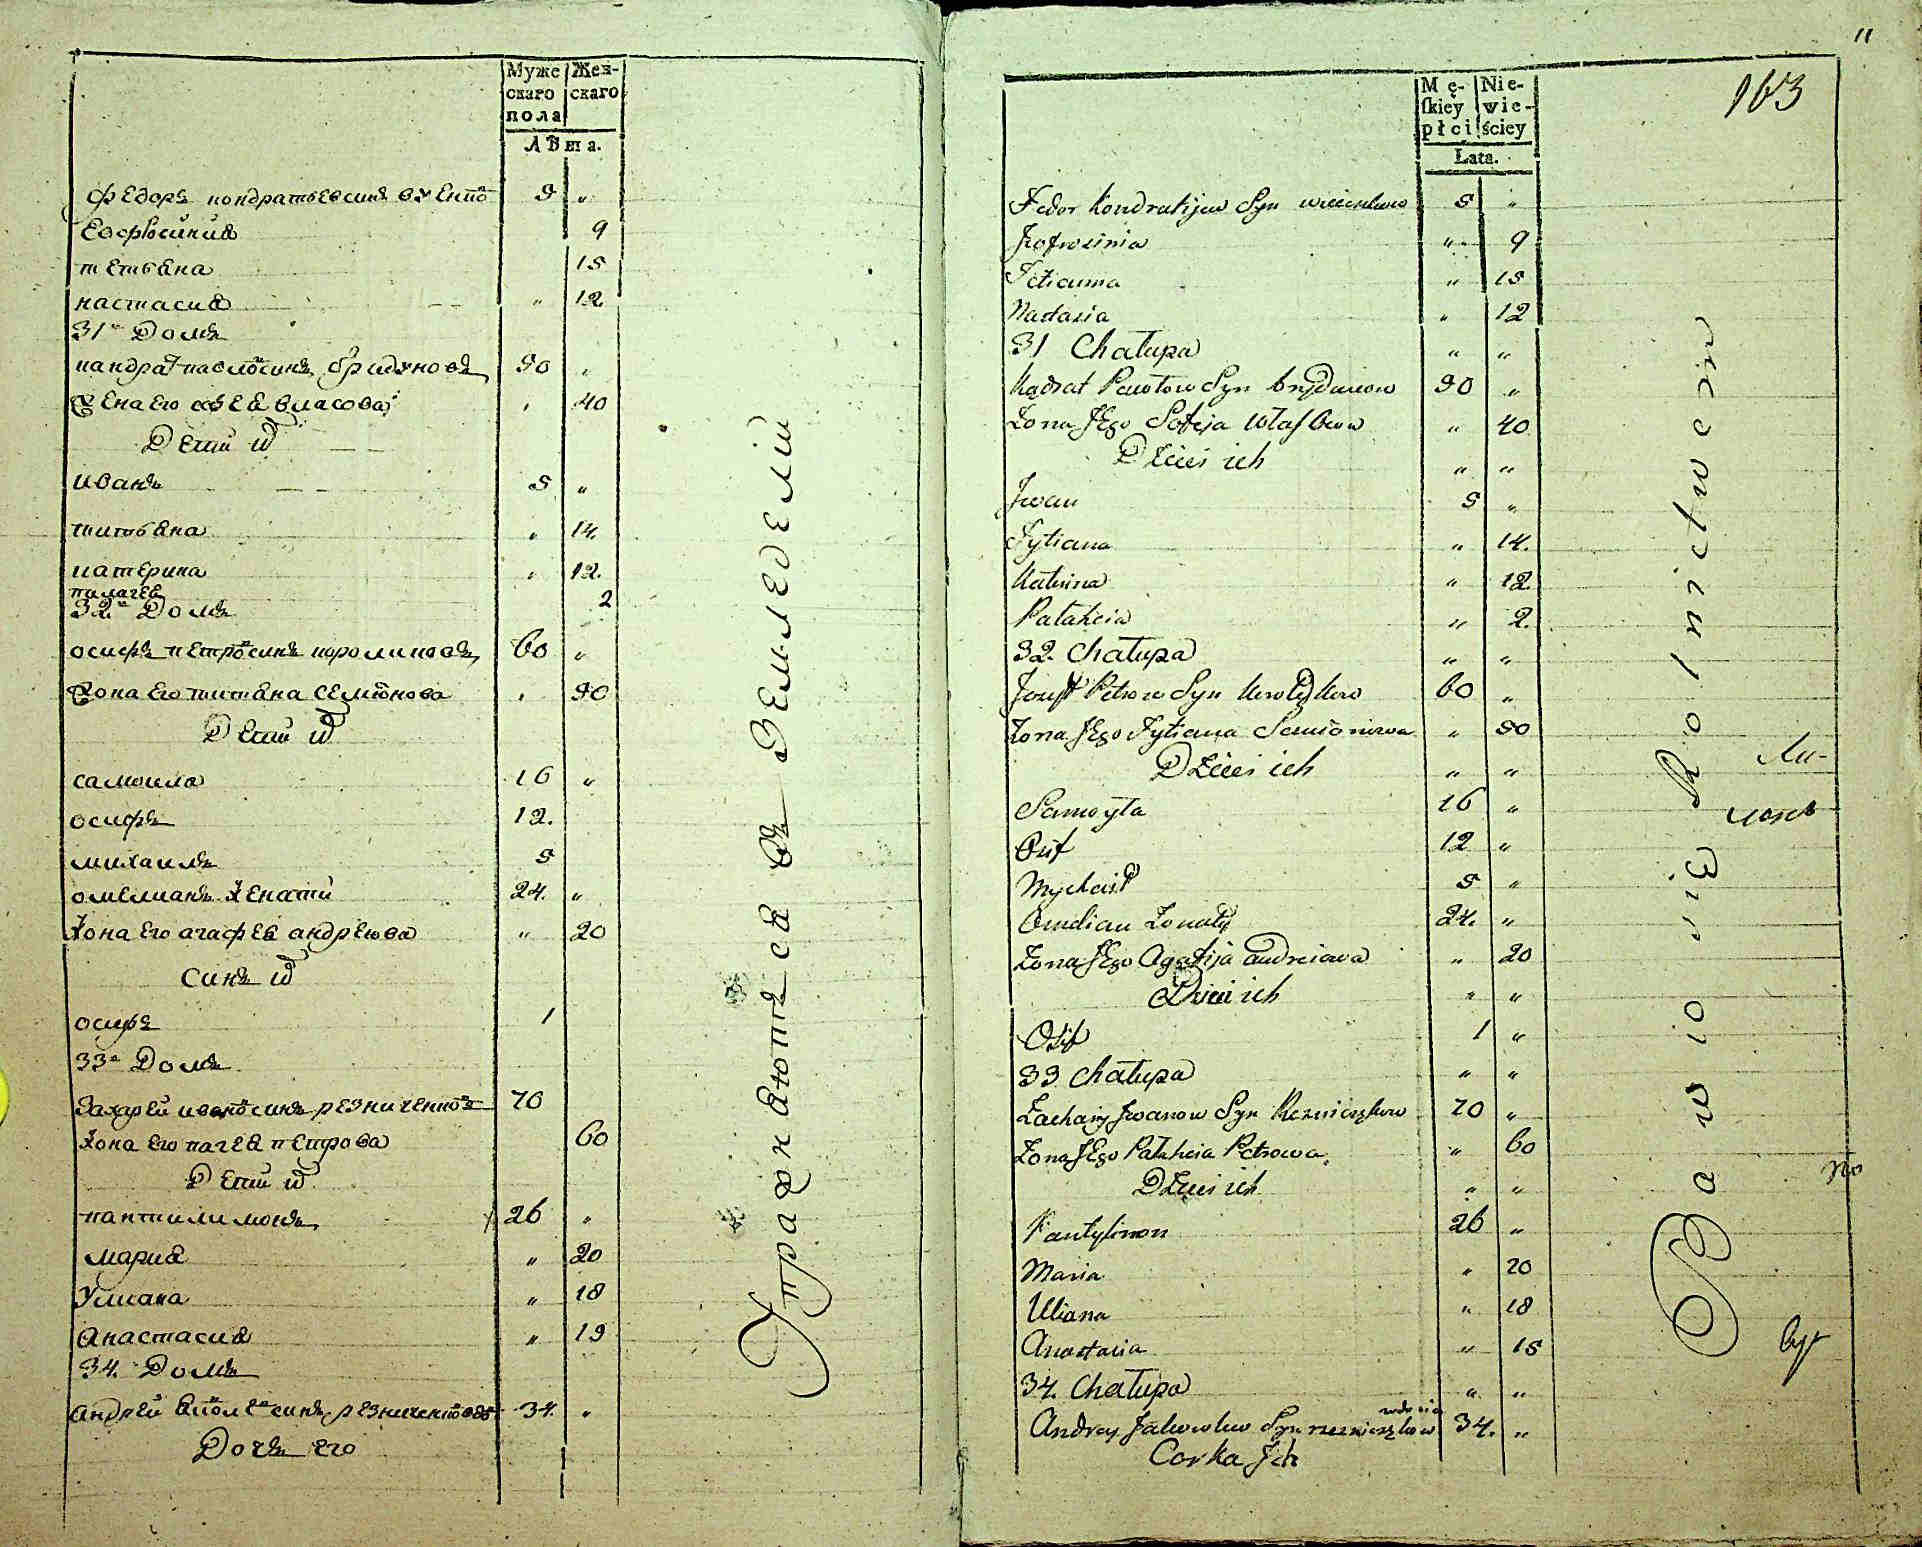 Муже
скаго
пола
Жен-
скаго
Лѣта.
федоръ кондратьевсинъ 9 „
Ефросиния 9
тетвяна 15
настасия „ 12
31й Домъ
кандрат павловсинъ бридуновъ 90 „
Жена Его софея власова „ 40
Дети и
иванъ 5 „
титвяна „ 14.
катерина „ 12.
палагея 2
32й Домъ
осифъ петровсинъ короликовъ 60 „
Жона Его титвяна семионова „ 90
Дети и
самоила 16 „
осифъ 12.
михаилъ 5
омелианъ женати 24. „
жона Его агафея андреюва „ 20
синъ и
осифъ 1
33й Домъ
Захарей ивановсинъ резниченков 70
жона Его пагея петрова 60
Дети и
пантилимонъ 26 „
мария „ 20
Улиана „ 18
Анастасия „ 19
34. Домъ
андрей синъ резниченковъ 34. „
Дочъ его
Упражняютъся въ Земледелїи
11
163
Mę-
skiey
płci
Nie-
wie-
ściey
Lata.
Fedor Kondratijew Syn 5 „
Jefrosinia „ 9
Teticuna „ 15
Nastasia „ 12
31 Chałupa „ „
Kądrat Pawłow Syn brydunow 90 „
Żona JEgo Sofija Własowa „ 40
Dzieci ich „ „
Jwan 5 „
Tytiana „ 14.
Katrina „ 12
Palaheia „ 2.
32. Chałupa „ „
Jousf Petrow Syn Korolykow 60 „
Żona JEgo Tytiana Semionowa „ 50
Dzieci ich „ „
Samoyła 16 „
Osif 12 „
Mychaił 5 „
Omelian Żonaty 24. „
Żona JEgo Agafija andreiowa „ 20
Dzieci ich „ „
Osif 1 „
33 Chałupa „ „
Zachary Jwanow Syn Rezniczękow 70 „
Żona JEgo Palaheia Petrowa „ 60
Dzieci ich „ „
Pantylimon 26 „
Maria „ 20
Uliana „ 18
Anastasia „ 15
34. Chałupa „ „
Andrey Jakowlew Syn rezniczękow wdowiec 34. „
Corka Jch
Bawio się Rolnictwem